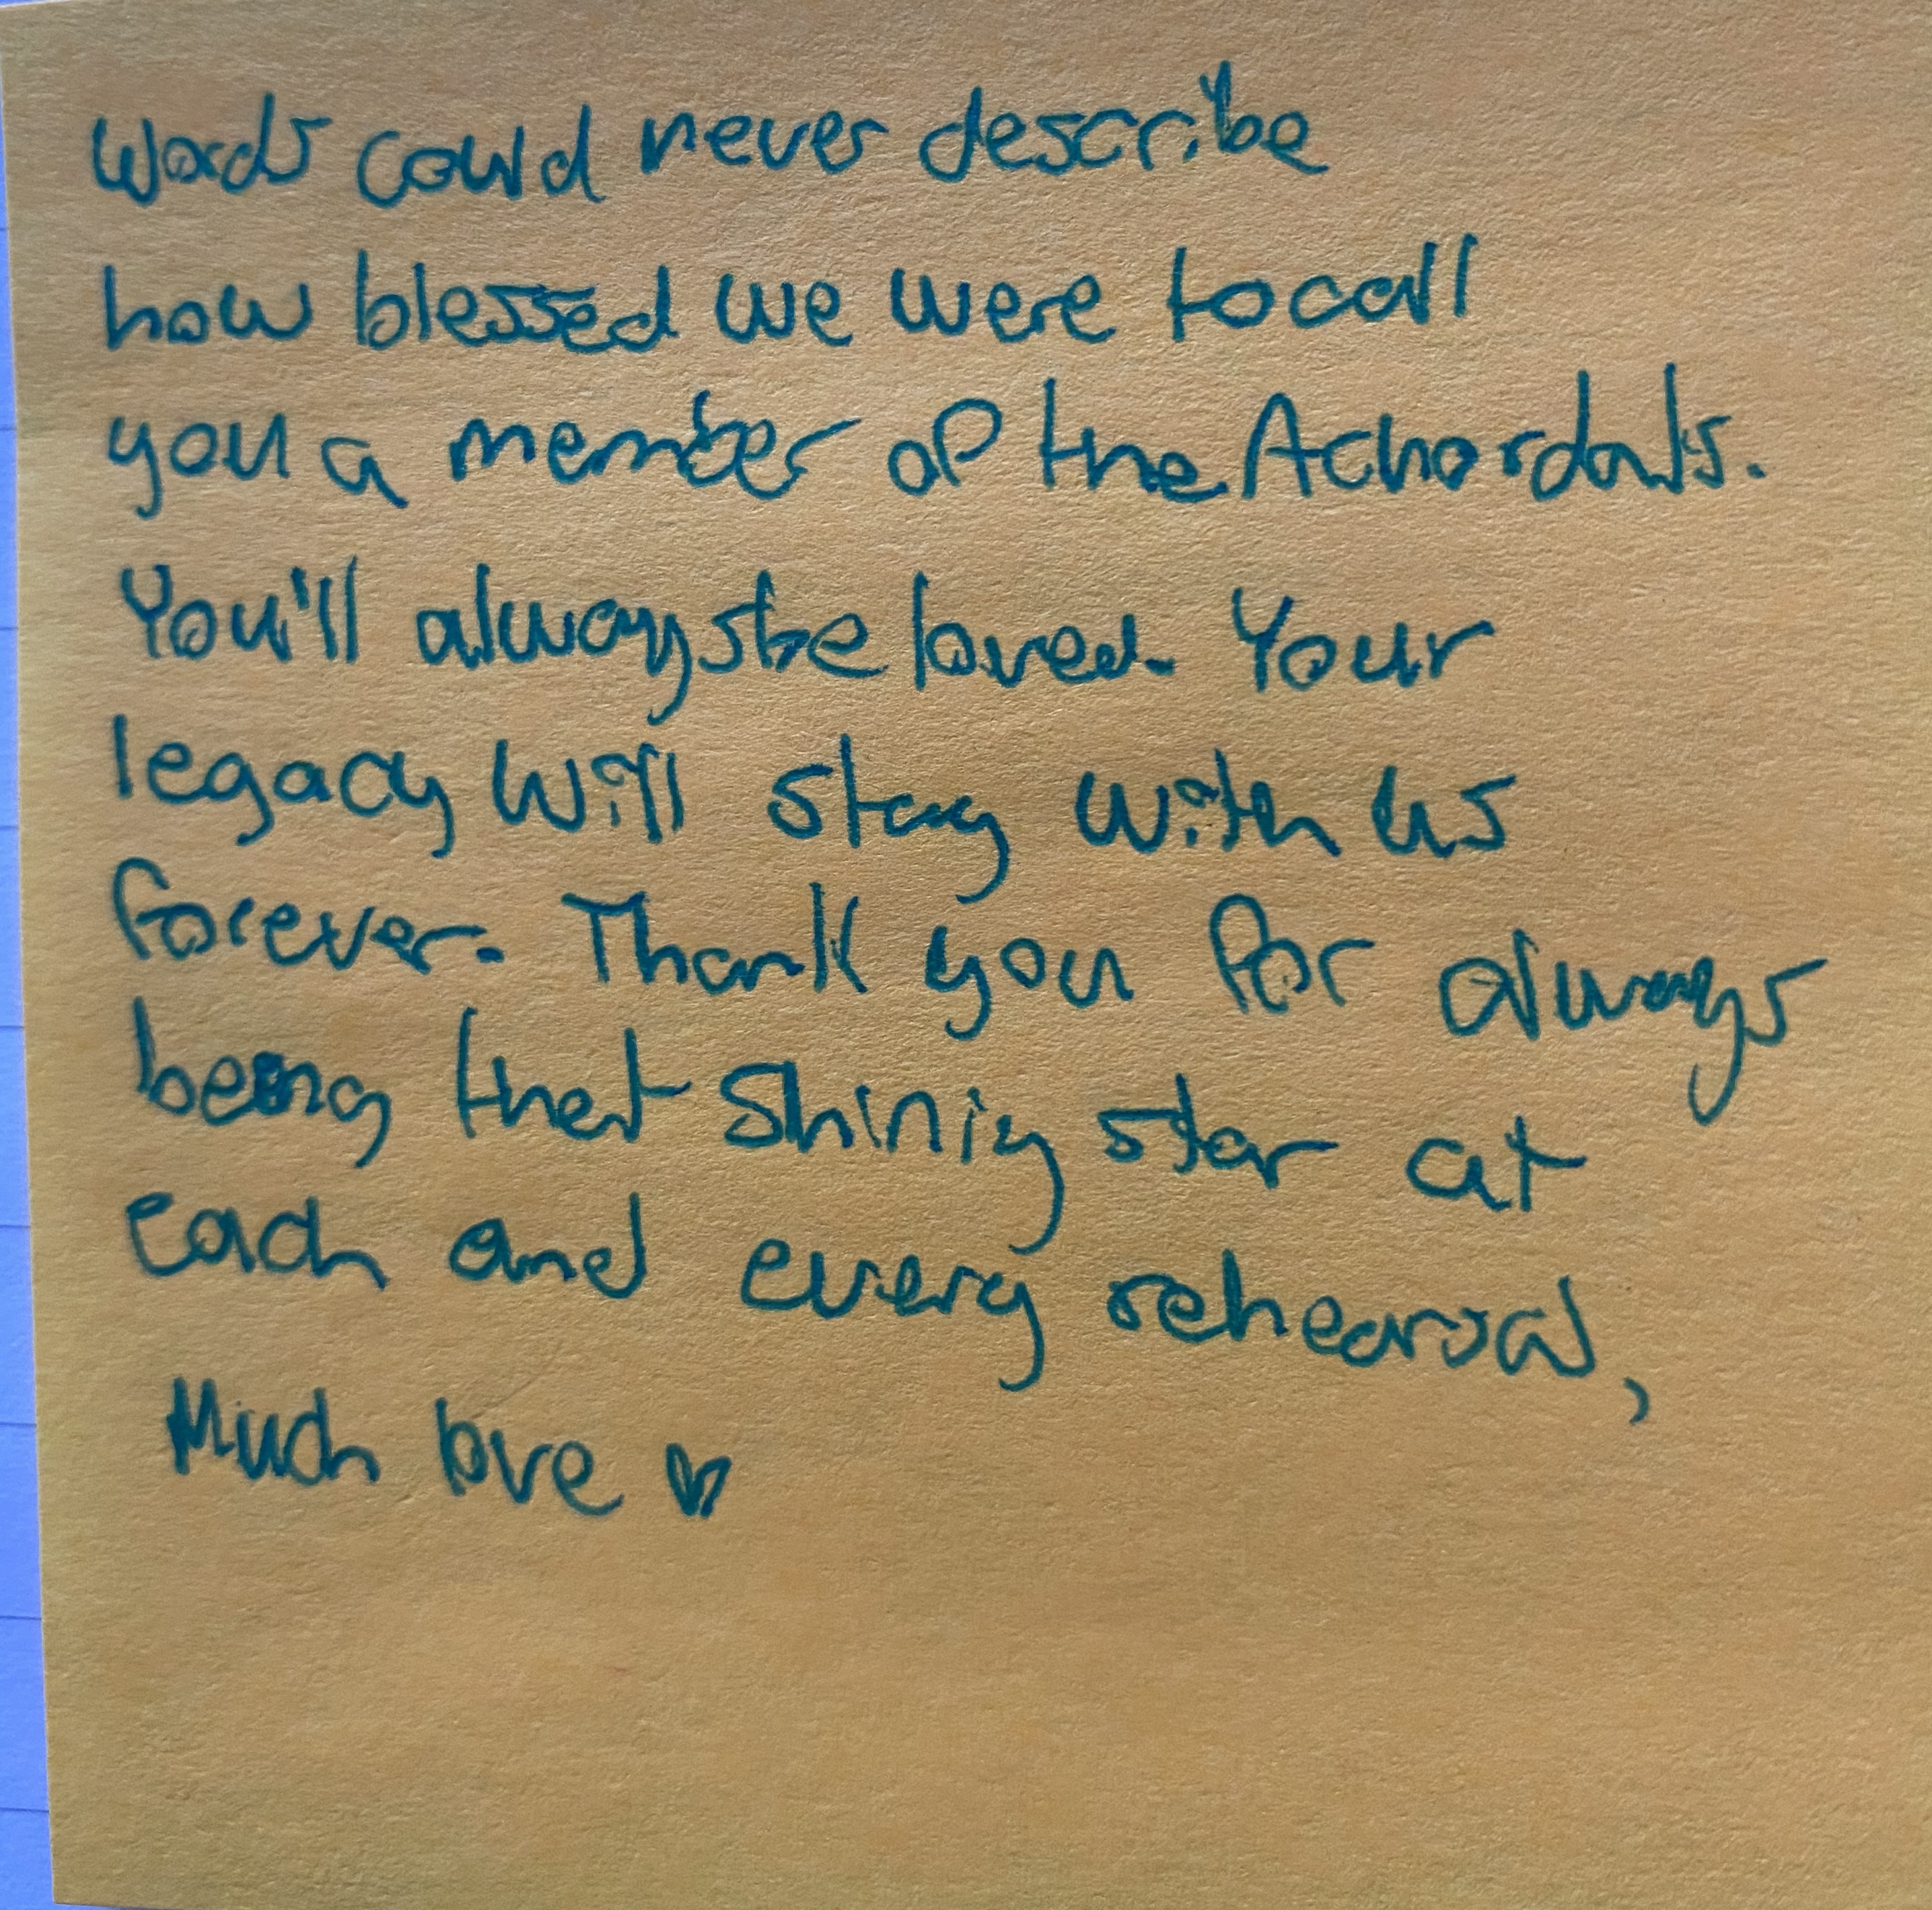 Words could never describe
how blessed we were to call
you a member of the Achordants.
You'll always be loved. Your
legacy will stay with us
forever. Thank you for always
being that shiniy star at
each and every rehearsal,
Much love ♥